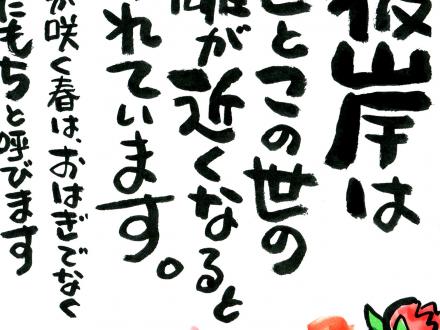 彼岸は
とこの世の
離が近くなると
れています。
が咲く春は、おはぎでなく
たもちと呼びます